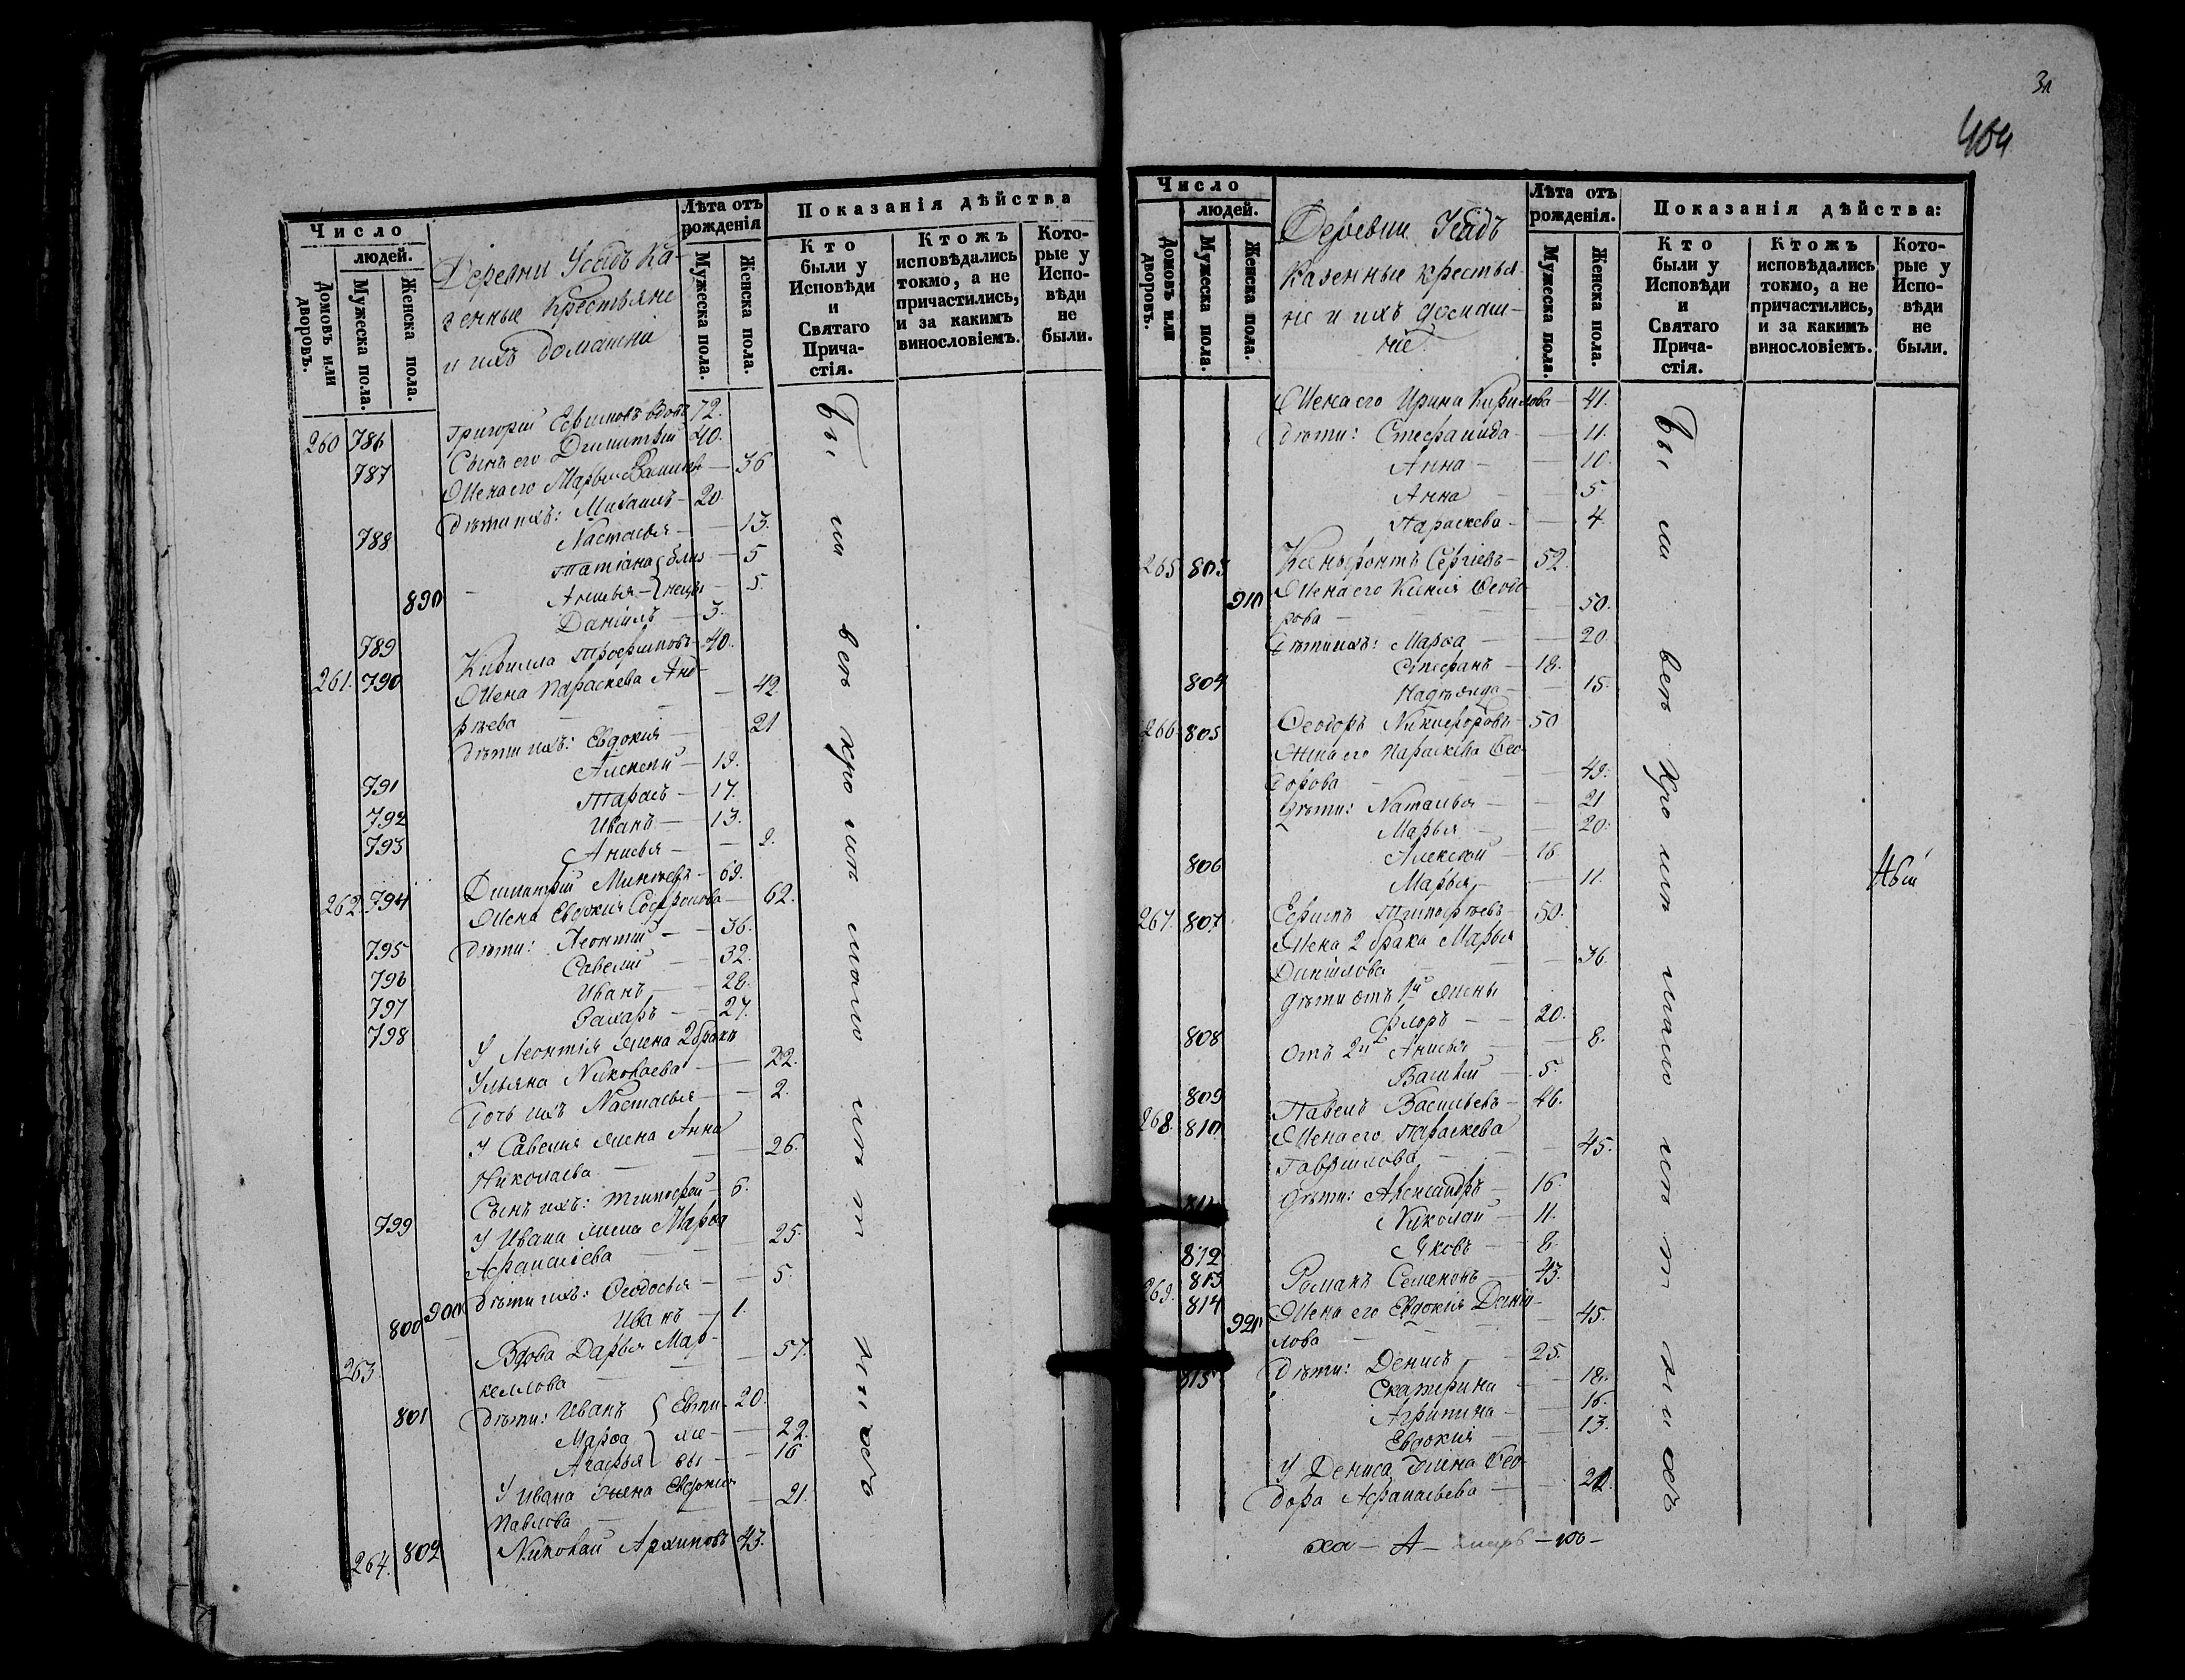 Число
людей.
Домовъ или дворовъ.
Мужеска пола.
Женска пола.
Деревни Усадъ Ка-
зенные Крестьяне
и ихъ домашни
Лѣта отъ
рожденія
Мужеска пола.
Женска пола.
Показанія дѣйства
Кто
были у
Исповѣди
и
Святаго
Прича-
стія.
Ктожъ
исповѣдались
токмо, а не
причастились,
и за какимъ
винословіемъ.
Кото-
рые у
Испо-
вѣди
не
были.
260 786 Григорій Ефимовъ вдовъ 72.
787 Сынъ его Димитрій 40.
Жена его Марья 36
788 Дѣти ихъ: Михаилъ 20
Настасья 13.
Татіана близ 5
890 Анисья нецы 5.
789 Даніилъ 3.
261. 790 Кирилла Трофимовъ 40.
Жена Параскева Анд-
рѣева 42
Дѣти ихъ: Евдокія 21
791 Алексѣй 19.
792 Тарасъ 17.
793 Иванъ 13.
Анисья 9.
262 794 Димитрій 69.
Жена Евдокія Софронова 62.
795 Дѣти: Леонтій 36.
796 Савелій 32.
797 Иванъ 28.
798 Захаръ 27.
У Леонтія жена 2 брака
Ульяна Николаева 22.
Дочь ихъ Настасья 2.
У Савелия жена Анна
Николаева 26.
799 Сынъ ихъ: Тимофей 6.
У Ивана жена Марѳа
Афанасіева 25.
900 Дѣти ихъ: Ѳеодосья 5.
800 Иванъ 1.
263 Вдова Дарья Мар-
келлова 57.
801 Дѣти: Иванъ Евти- 20.
Марѳа хіе- 22.
Агафья вы 16
У Ивана жена Евдокия
Павлова 21.
264. 802 Николай Архиповъ 43.
Бы ли всѣ кро мѣ мало лѣ т н и хъ
404
Число
людей.
Домовъ или дворовъ.
Мужеска пола.
Женска пола.
Деревни Усадъ
Казенные крестья-
не и ихъ домаш-
ніе.
Лѣта отъ
рожденія.
Мужеска пола.
Женска пола.
Показанія дѣйства:
Кто
были у
Исповѣди
и
Святаго
Прича-
стія.
Ктожъ
исповѣдались
токмо, а не
причастились,
и за какимъ
винословіемъ.
Кото-
рые у
Испо-
вѣди
не
были.
Жена его Ирина Кирилова 41.
Дѣти: Стефанида 11.
Анна 10.
Анна 5.
Параскева 4.
265 803 Ксенофонтъ Сергіевъ 52.
910 Жена его Ксенія Ѳеодо-
рова 50.
Дѣти ихъ: Марѳа 20
804 Стефанъ 18.
Надежда 15.
266 805 Ѳеодоръ Никифоровъ 50
Жена его Параскева Ѳео-
дорова 49.
Дѣти: Наталья 21
Марья 20.
806 Алексѣй 16.
Марья 11.
267 807 Ефимъ Тимофѣевъ 50.
Жена 2 брака Марья
Данилова 36.
Дѣти отъ 1й жены
808 Флоръ 20.
отъ 2й Анисья 8.
809 Василій 5.
268. 810 Павелъ Васильевъ 46.
Жена его Параскева
Гаврилова 45.
811 Дѣти: Александръ 16.
812 Николай 11.
813 Яковъ 8.
269. 814 Романъ Семеновъ 43.
920 Жена его Евдокія Дани-
лова 45.
815 Дѣти: Денисъ 25.
Екатерина 18.
Агрипина 16.
Евдокія 13.
У Дениса жена Ѳео-
дора Афанасьева 21.
Бы ли всѣ кро мѣ мало лѣ т н и хъ